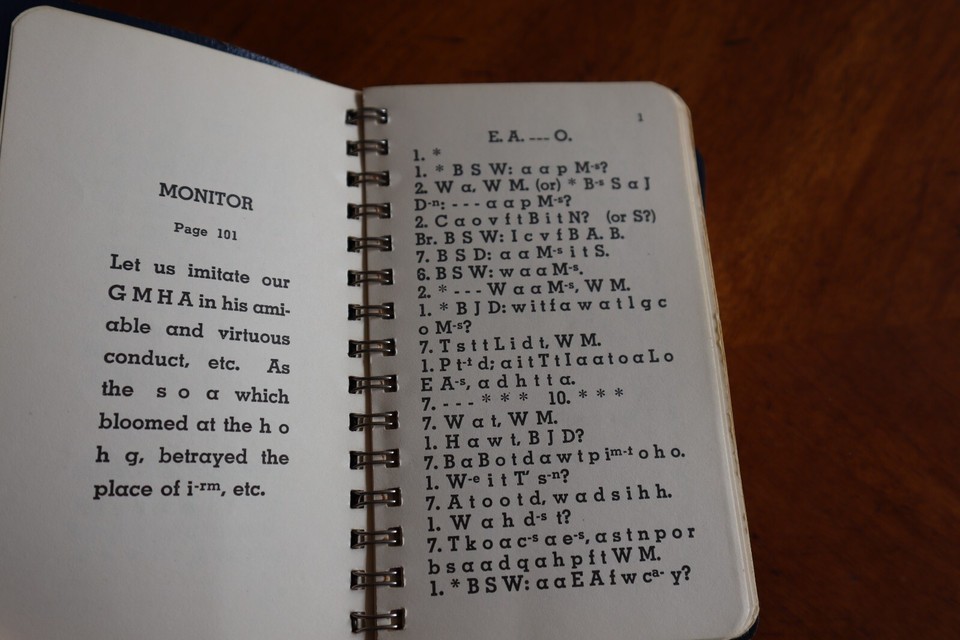 MONITOR
Page 101
Let us imitate our
G M H A in his ami-
able and virtuous
conduct, etc. As
the s o a which
bloomed at the h o
h g, betrayed the
place of i-rm, etc.
1
E. A. --- O.
1. *
1. * B S W: a a p M-s?
2. W a, W M. (or) * B-s S a J
D-n: - - - a a p M-s?
2. C a o v f t B i t N? (or S?)
Br. B S W: I c v f B A. B.
7. B S D: a a M-s i t S.
6. B S W: w a a M-s.
2. * - - - W a a M-s, W M.
1. * B J D: w i t f a w a t l g c
o M-s?
7. T s t t L i d t, W M.
1. P t-t d; a i t T t I a a t o a L o
E A-s, a d h t t a.
7. - - - * * * 10. * * *
7. W a t, W M.
1. H a w t, B J D?
7. B a B o t d a w t p i m-t o h o.
1. W-e i t T' s-n?
7. A t o o t d, w a d s i h h.
1. W a h d-s t?
7. T k o a c-s a e-s, a s t n p o r
b s a a d q a h p f t W M.
1. * B S W: a a E A f w c a- y?